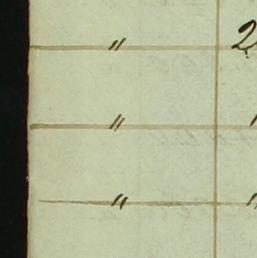 " 2
" "
" "